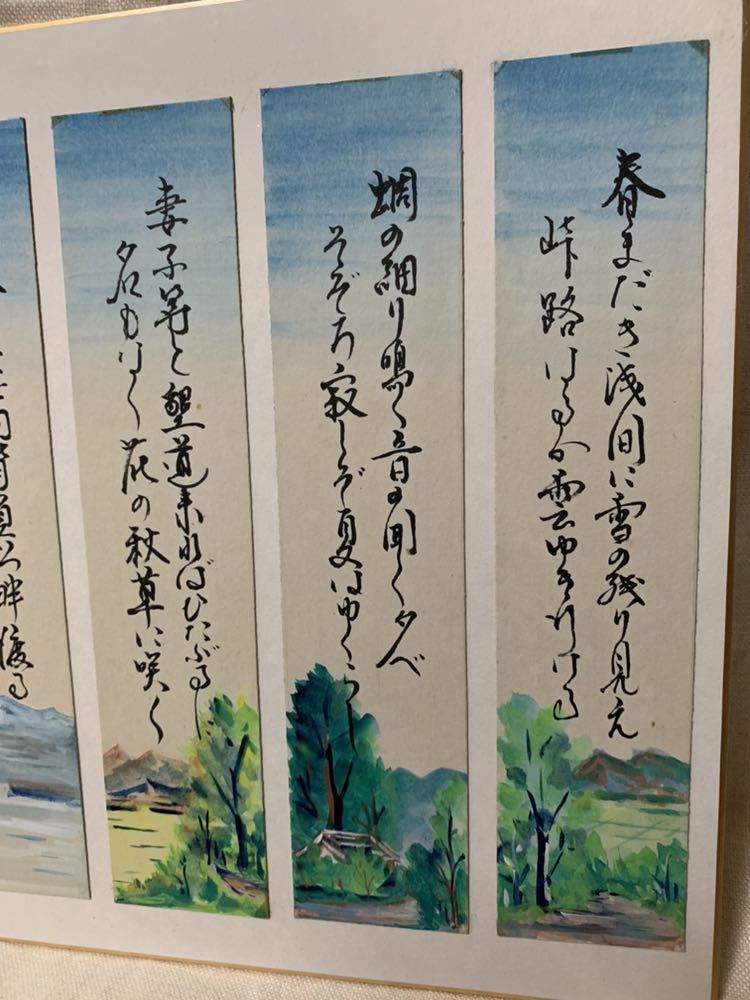 春まだき浅間に雪の残り見え
峠路はるか雲ゆき
蜩の細り鳴く音の聞く夕べ
そぞろ寂しぞ夏はゆくらし
妻子等と墾道来ればひたぶるに
名もなく花の秋草に咲く